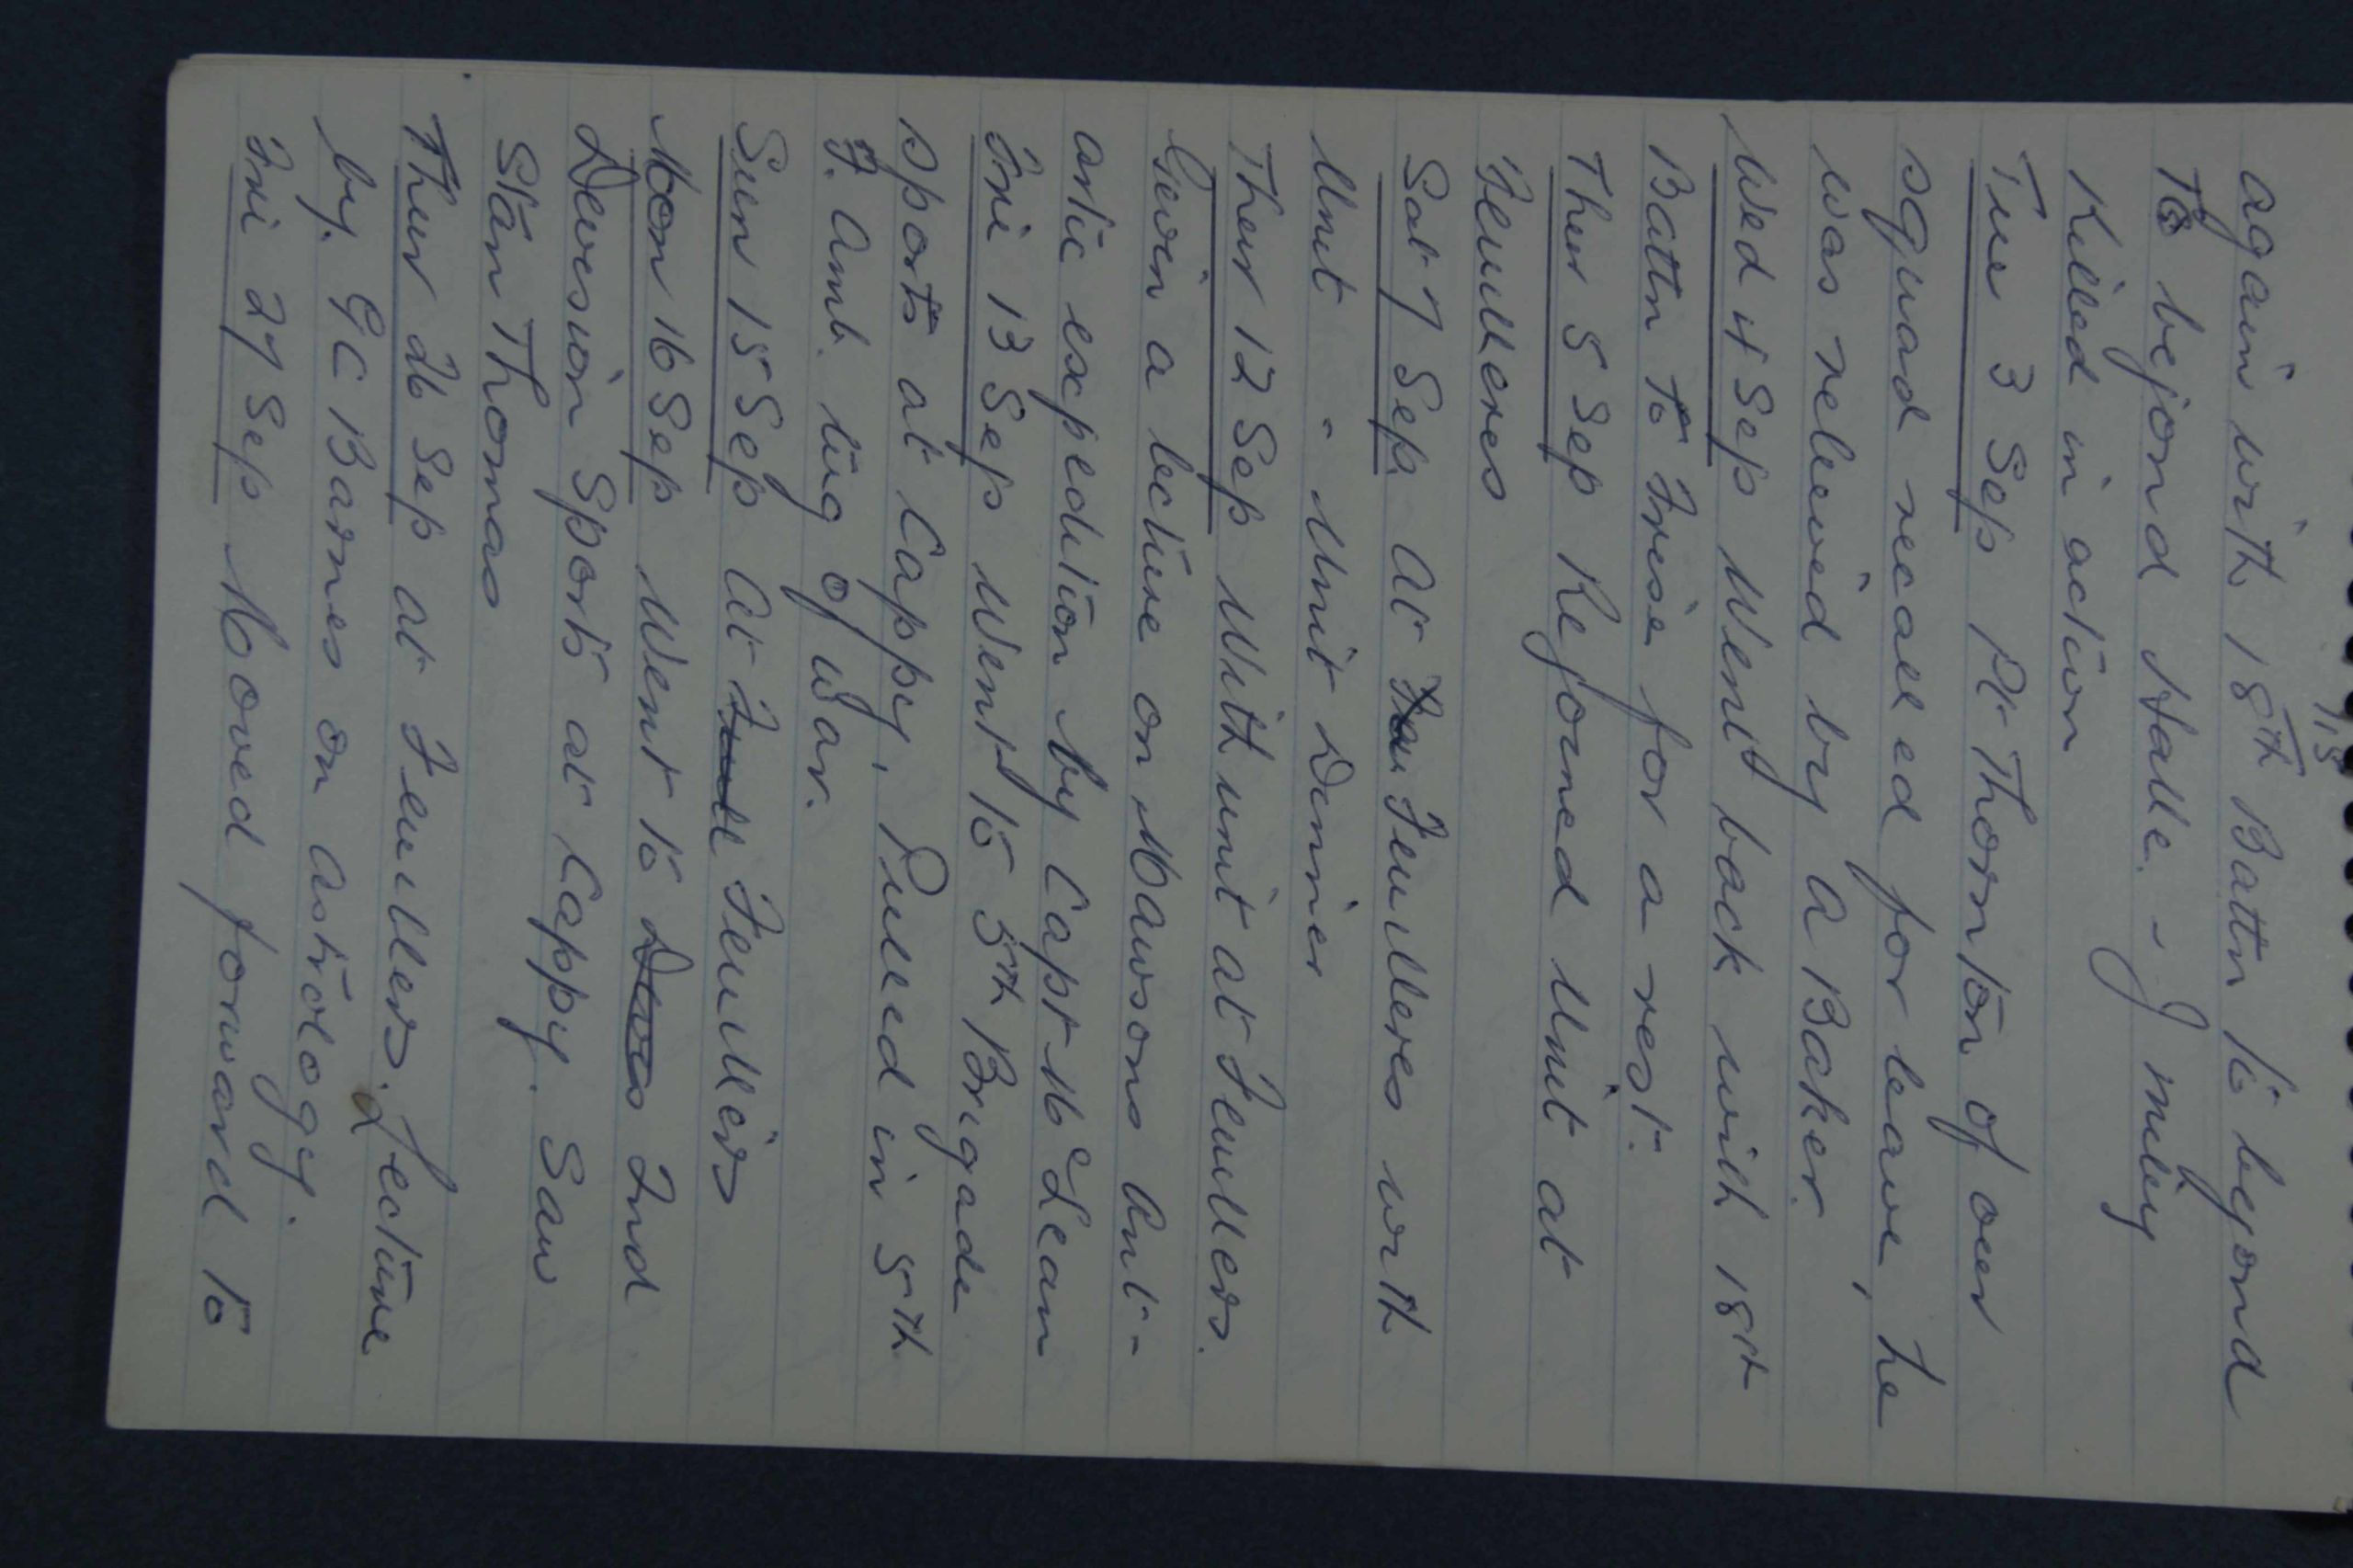 115
again with 18th Battn to beyond
To bejond Halle. - J miley
Killed in action
Tue 3 Sep Pt Thornton of our
squad recalled for leave, he
was relieved by A Baker.
Wed 4 Sep Went back with 18th
Battn to Frise for a rest.
Thur 5 Sep Rejoined Unit at
Feulleres
Sat 7 Sep. At Feulleres with
Unit - Unit Dinner
Thur 12 Sep With unit at Feullers.
Given a lecture on Mawsons Ant-
artic expedition by Capt McLean
Fri 13 Sep Went to 5th Brigade
sports at Cappy, Pulled in 5th
F. Amb. tug of war.
Sun 15 Sep At Feulleirs
Mon 16 Sep Went to 2nd
Devesion Sports at Cappy. Saw
Stan Thomas
Thur 26 Sep at Feullers. Lecture
by. GC Barnes on Astrology.
Fri 27 Sep Moved forward to